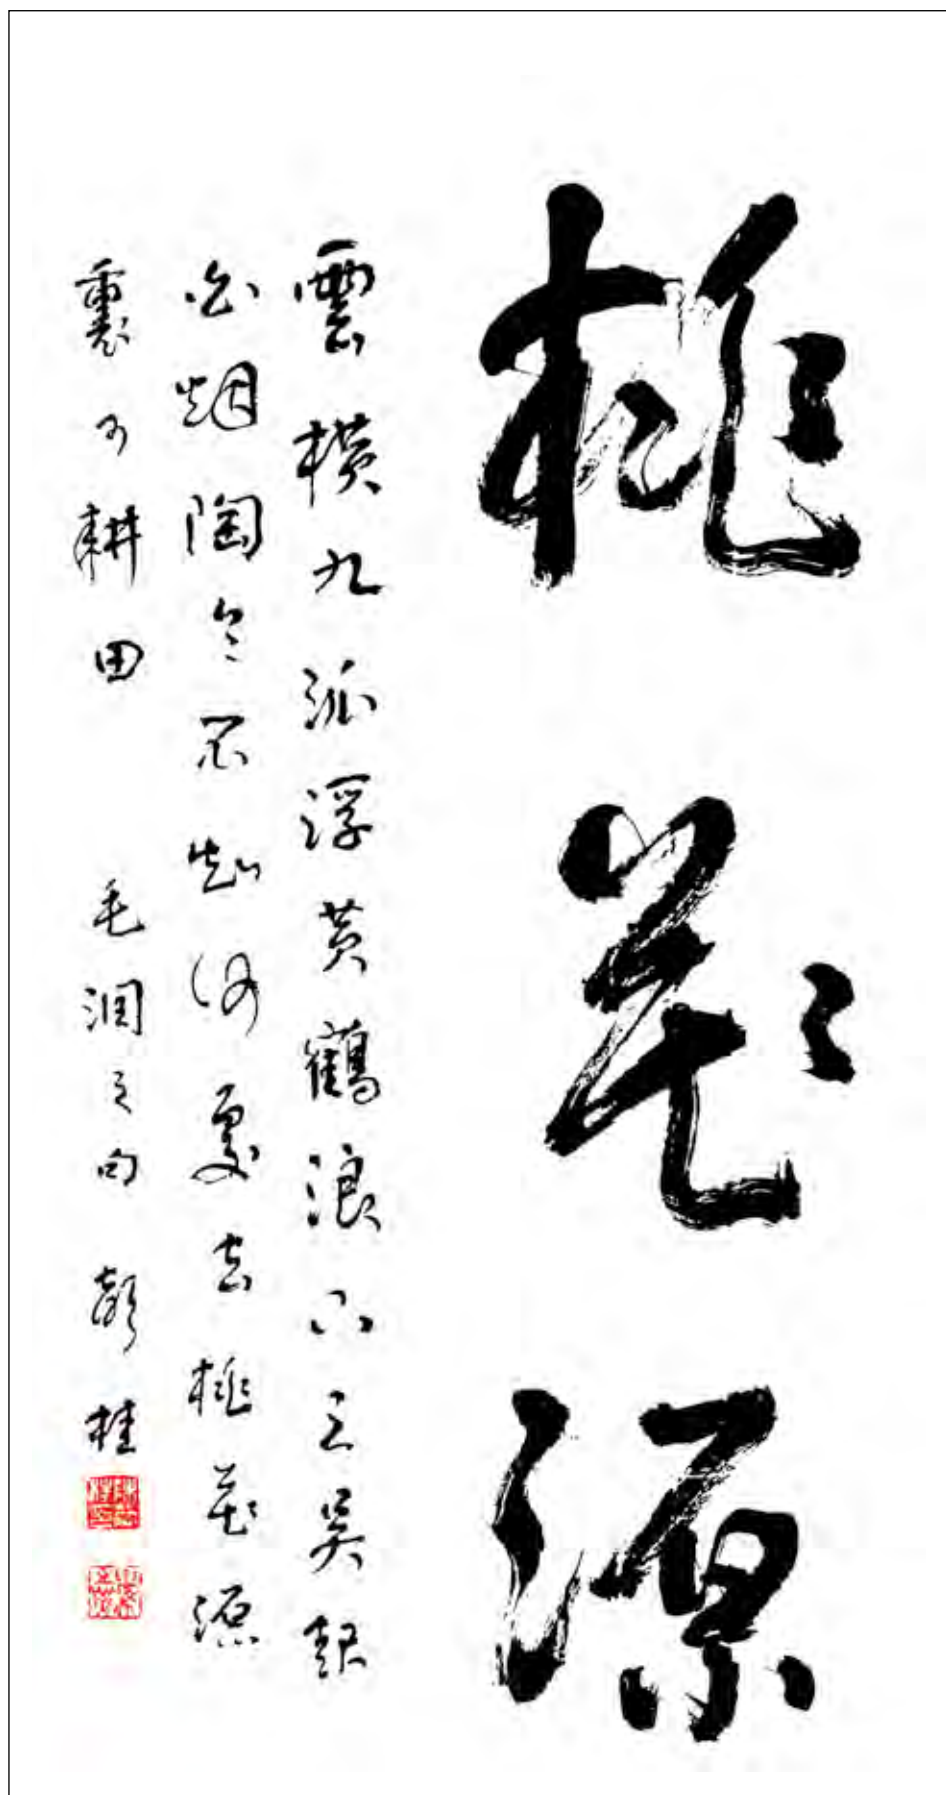 桃花源
雲横九派浮黄鶴浪下三吴起
白烟陶令不知何處去桃花源
裏可耕田 毛润之句 桂